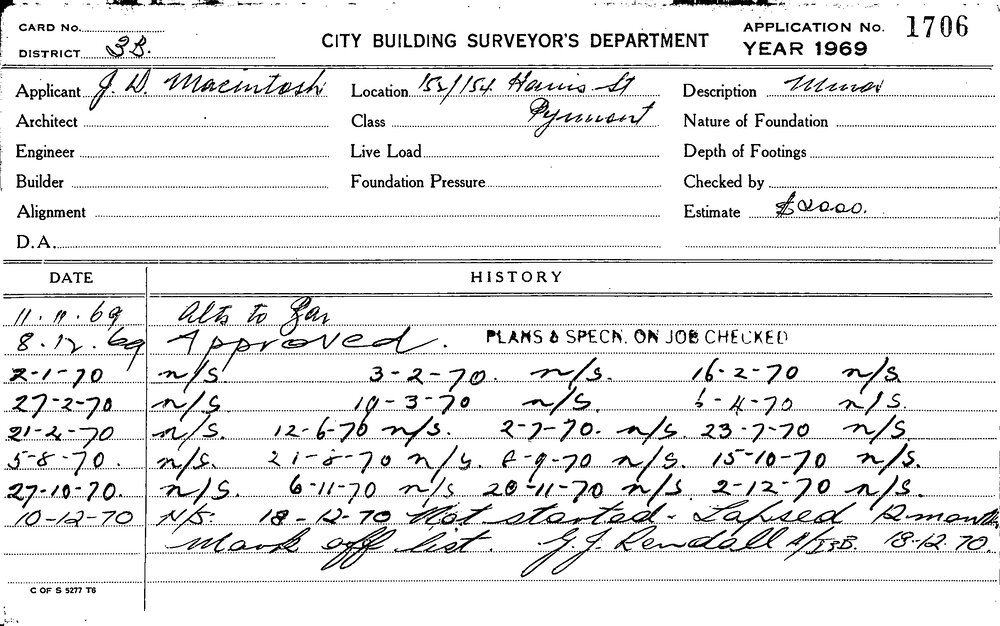 CARD No.
DISTRICT 3B.
CITY BUILDING SURVEYOR'S DEPARTMENT
APPLICATION No. 1706
YEAR 1969
Applicant J. D. Macintosh Location 152/154 Harris St Description Minor
Architect Class Pyrmont Nature of Foundation
Engineer Live Load Depth of Footings
Builder Foundation Pressure Checked by
Alignment Estimate $2000.
D.A.
DATE HISTORY
11.11.69 Alts to
8.12.69 Approved. PLANS & SPECN. ON JOB CHECKED
2-1-70 n/s. 3-2-70. n/s. 16-2-70 n/s.
27-2-70 n/s. 19-3-70 n/s. 6-4-70 n/s.
21-4-70 n/s. 12-6-70 n/s. 2-7-70. n/s. 23-7-70 n/s
5-8-70. n/s. 21-8-70 n/s. 8-9-70 n/s. 15-10-70 n/s.
27-10-70. n/s. 6-11-70 n/s 20-11-70 n/s. 2-12-70 n/s.
10-12-70 N/S. 18-12-70 Not started - Lapsed 12 months
Mark off list. G.J. Kendall 18-12-70.
C OF S 5277 T6